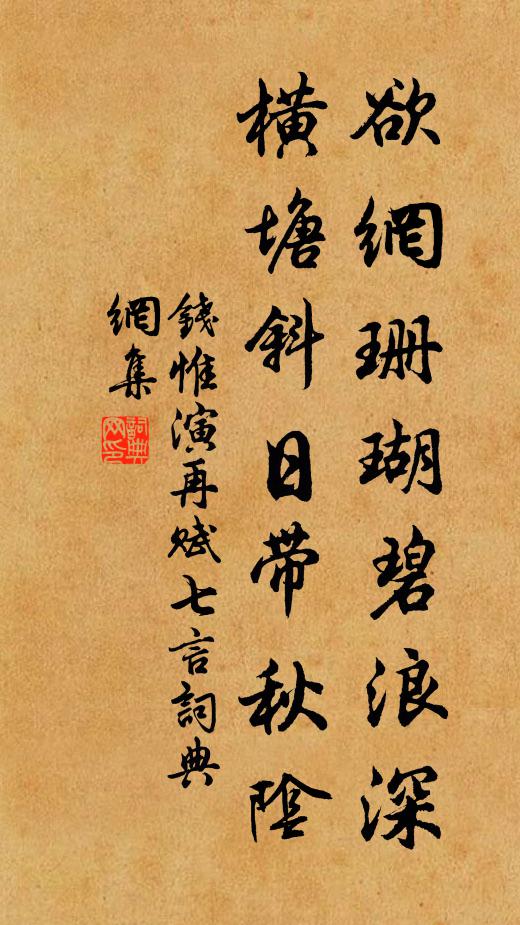 欲網珊瑚碧浪深
橫塘斜日帶秋陰
錢惟演再賦七言詞典
網集
詞典網印